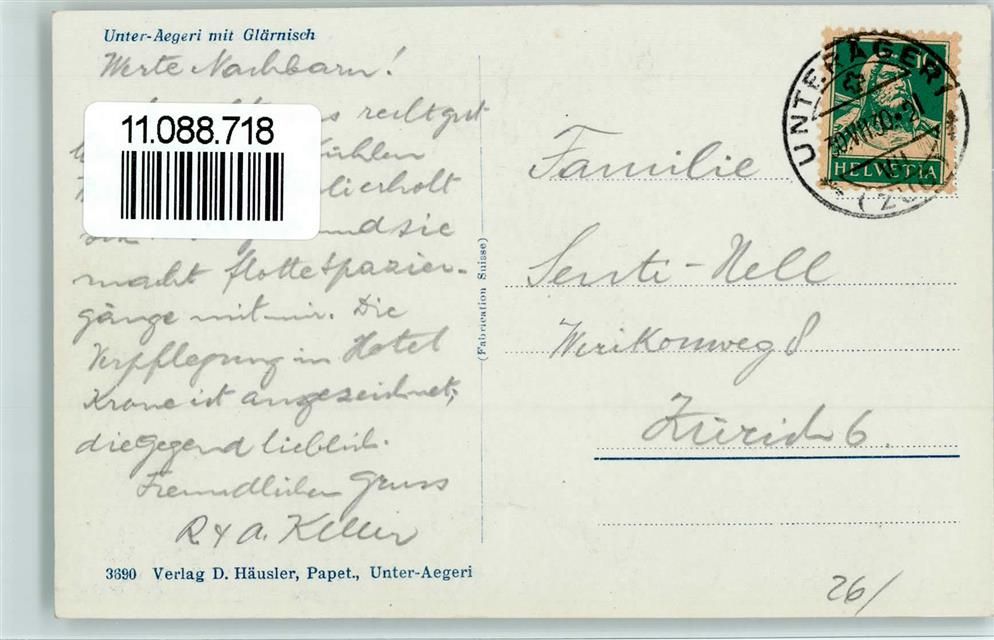 Unter-Aegeri mit Glärnisch
Werte Nachbarn!
recht gut
11.088.718
kühlen
erholt
und sie
macht flotte Spazier-
gänge mit mir. Die
Verpflegung im Hotel
Krone ist ausgezeichnet,
die Gegend lieblich.
Freundlichen Gruss
R & A. Keller
3690 Verlag D. Häusler, Papet., Unter-Aegeri
(Fabrication Suisse)
UNTERÄGERI
(ZUG)
HELVETIA
Familie
Senti-Nell
Wirikonweg 8
Zürich 6.
26/